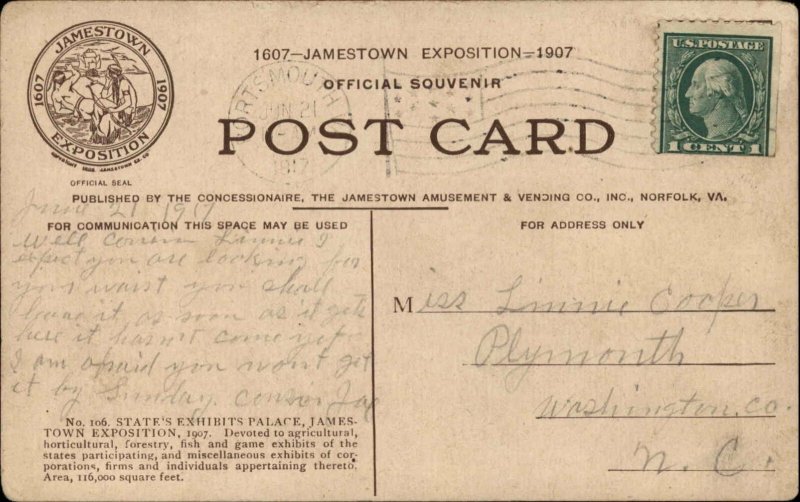 JAMESTOWN
1607 1907
EXPOSITION
OFFICIAL SEAL
1607—JAMESTOWN EXPOSITION—1907
OFFICIAL SOUVENIR
POST CARD
PORTSMOUTH
JUN 21
1917
U.S. POSTAGE
1 CENT 1
PUBLISHED BY THE CONCESSIONAIRE, THE JAMESTOWN AMUSEMENT & VENDING CO., INC., NORFOLK, VA.
FOR COMMUNICATION THIS SPACE MAY BE USED
FOR ADDRESS ONLY
June 21 1917
Well Linnie I
expect you are looking for
your waist you shall
have it as soon as it gets
here it hasn't come yet
I am afraid you wont get
it by Sunday
No. 106. STATE'S EXHIBITS PALACE, JAMES-
TOWN EXPOSITION, 1907. Devoted to agricultural,
horticultural, forestry, fish and game exhibits of the
states participating, and miscellaneous exhibits of cor-
porations, firms and individuals appertaining thereto.
Area, 116,000 square feet.
Miss Linnie Cooper
Plymouth
Washington, co.
N. C.